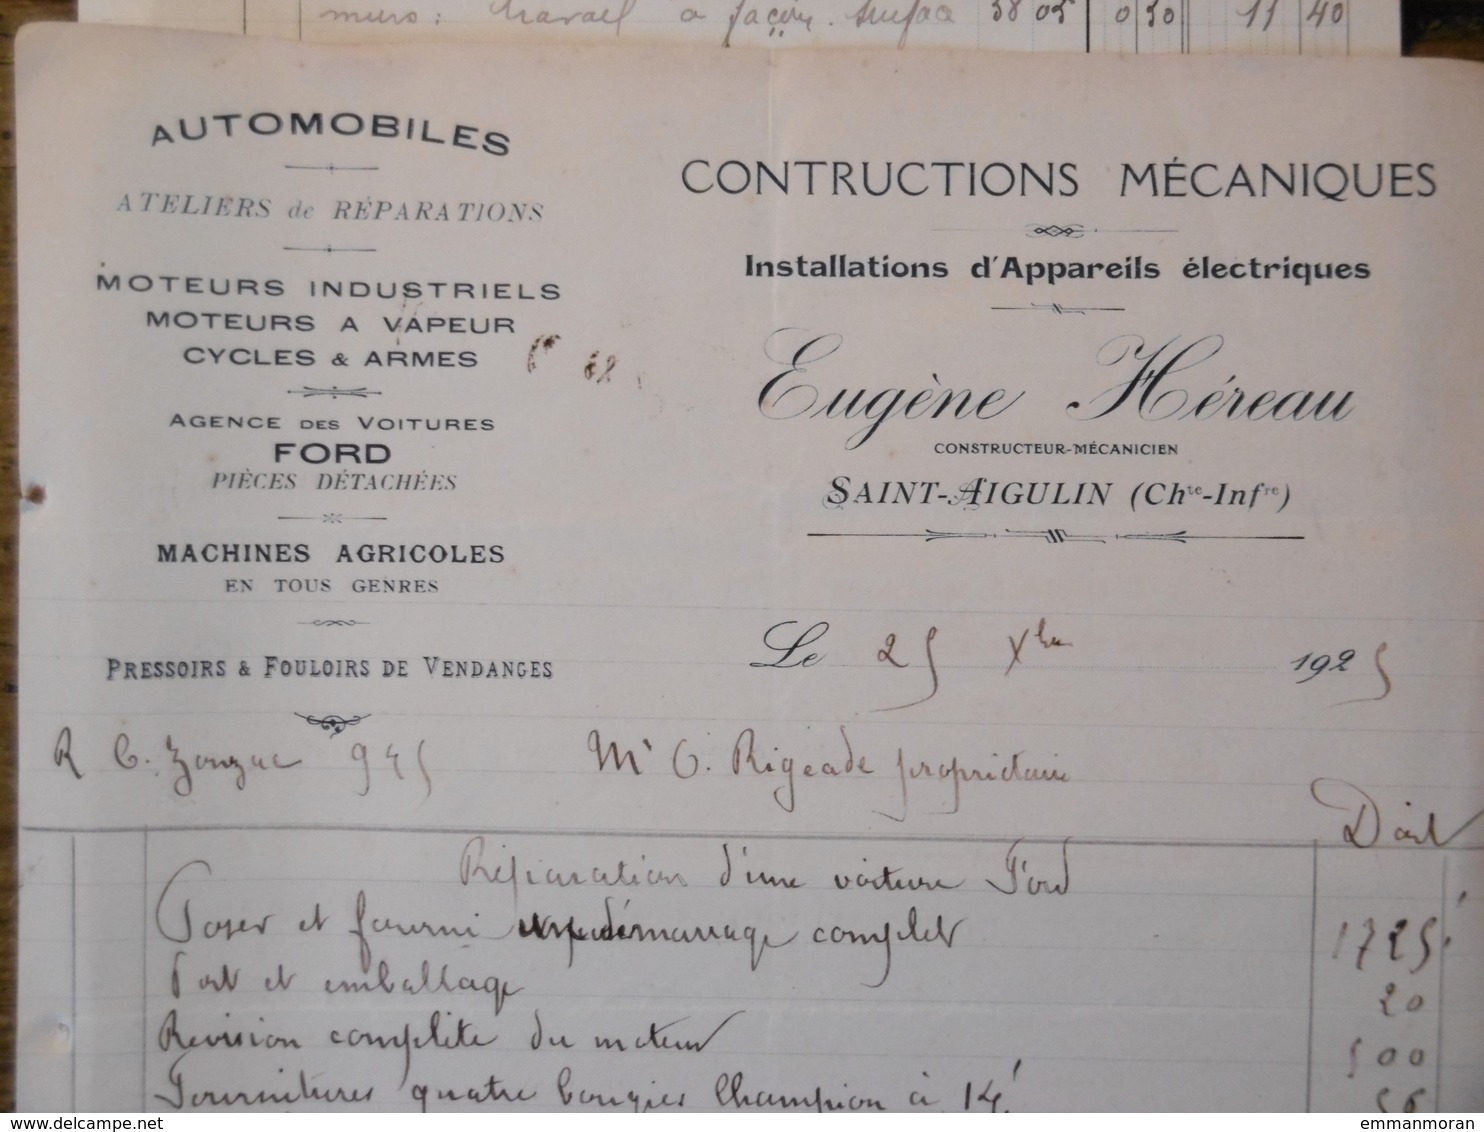 murs : travail à façon. surface 38 05 0 30 11 40
AUTOMOBILES
ATELIERS de RÉPARATIONS
MOTEURS INDUSTRIELS
MOTEURS A VAPEUR
CYCLES & ARMES
AGENCE DES VOITURES
FORD
PIÈCES DÉTACHÉES
MACHINES AGRICOLES
EN TOUS GENRES
PRESSOIRS & FOULOIRS DE VENDANGES
CONTRUCTIONS MÉCANIQUES
Installations d'Appareils électriques
Eugène Héreau
CONSTRUCTEUR-MÉCANICIEN
SAINT-AIGULIN (Chte-Infre)
Le 25 Xbre 1925
R C. Jonzac 945
Mr G. Rigeade propriétaire
Doit
Réparation d'une voiture Ford
Poser et fourni démarrage complet 1725
Port et emballage 20
Revision complète du moteur 500
Fournitures quatre bougies Champion à 14 56
delcampe.net
emmanmoran